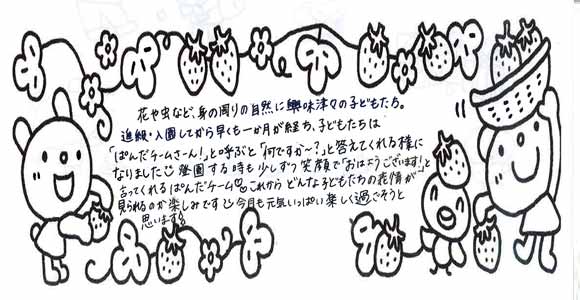 花や虫など、身の周りの自然に興味津々の子どもたち。
進級・入園してから早くも一か月が経ち、子どもたちは
「ぱんだチームさーん!」と呼ぶと「何ですか～?」と答えてくれる様に
なりました☺ 登園する時も少しずつ笑顔で「おはようございます!」と
言ってくれるぱんだチーム♡これからどんな子どもたちの表情が
見られるのか楽しみです☺今月も元気いっぱい楽しく過ごそうと
思います!